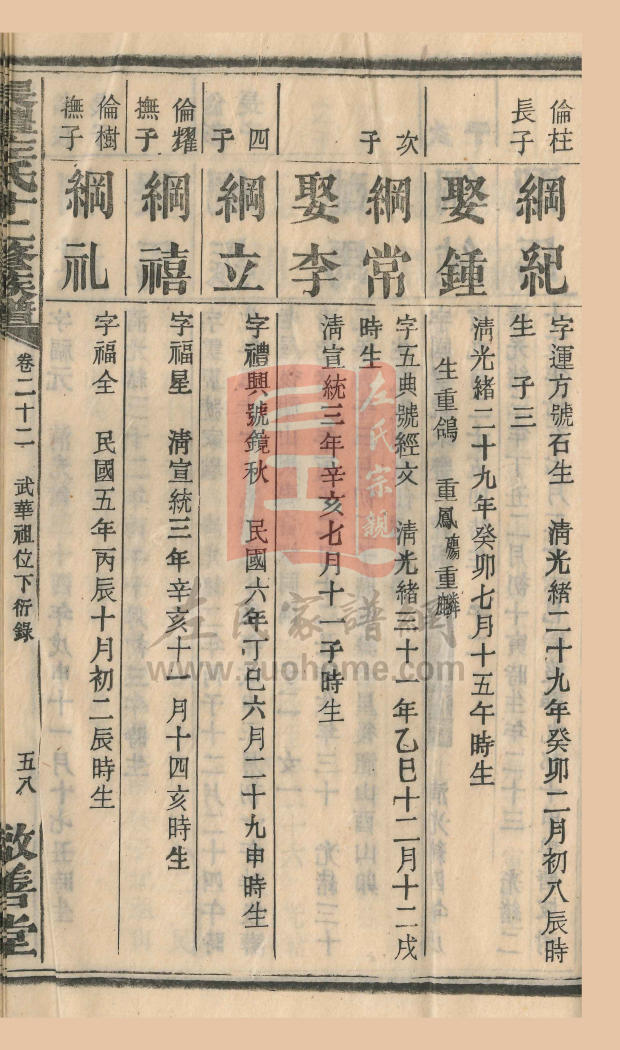 倫柱
長子
綱紀
字運方號石生 清光緒二十九年癸卯二月初八辰時
生 子三
娶鍾
清光緒二十九年癸卯七月十五午時生
生重鴿 重鳳殤 重麟
次
子
綱常
字五典號經文 清光緒三十一年乙巳十二月十二戌
時生
娶李
清宣統三年辛亥七月十一子時生
四
子
綱立
字禮興號鏡秋 民國六年丁巳六月二十九申時生
倫耀
撫子
綱禧
字福星 清宣統三年辛亥十一月十四亥時生
倫樹
撫子
綱礼
字福全 民國五年丙辰十月初二辰時生
氏十二修族譜
卷二十二 武華祖位下衍錄
五八
敬善堂
左氏宗親
左氏家譜網
www.zuohome.com